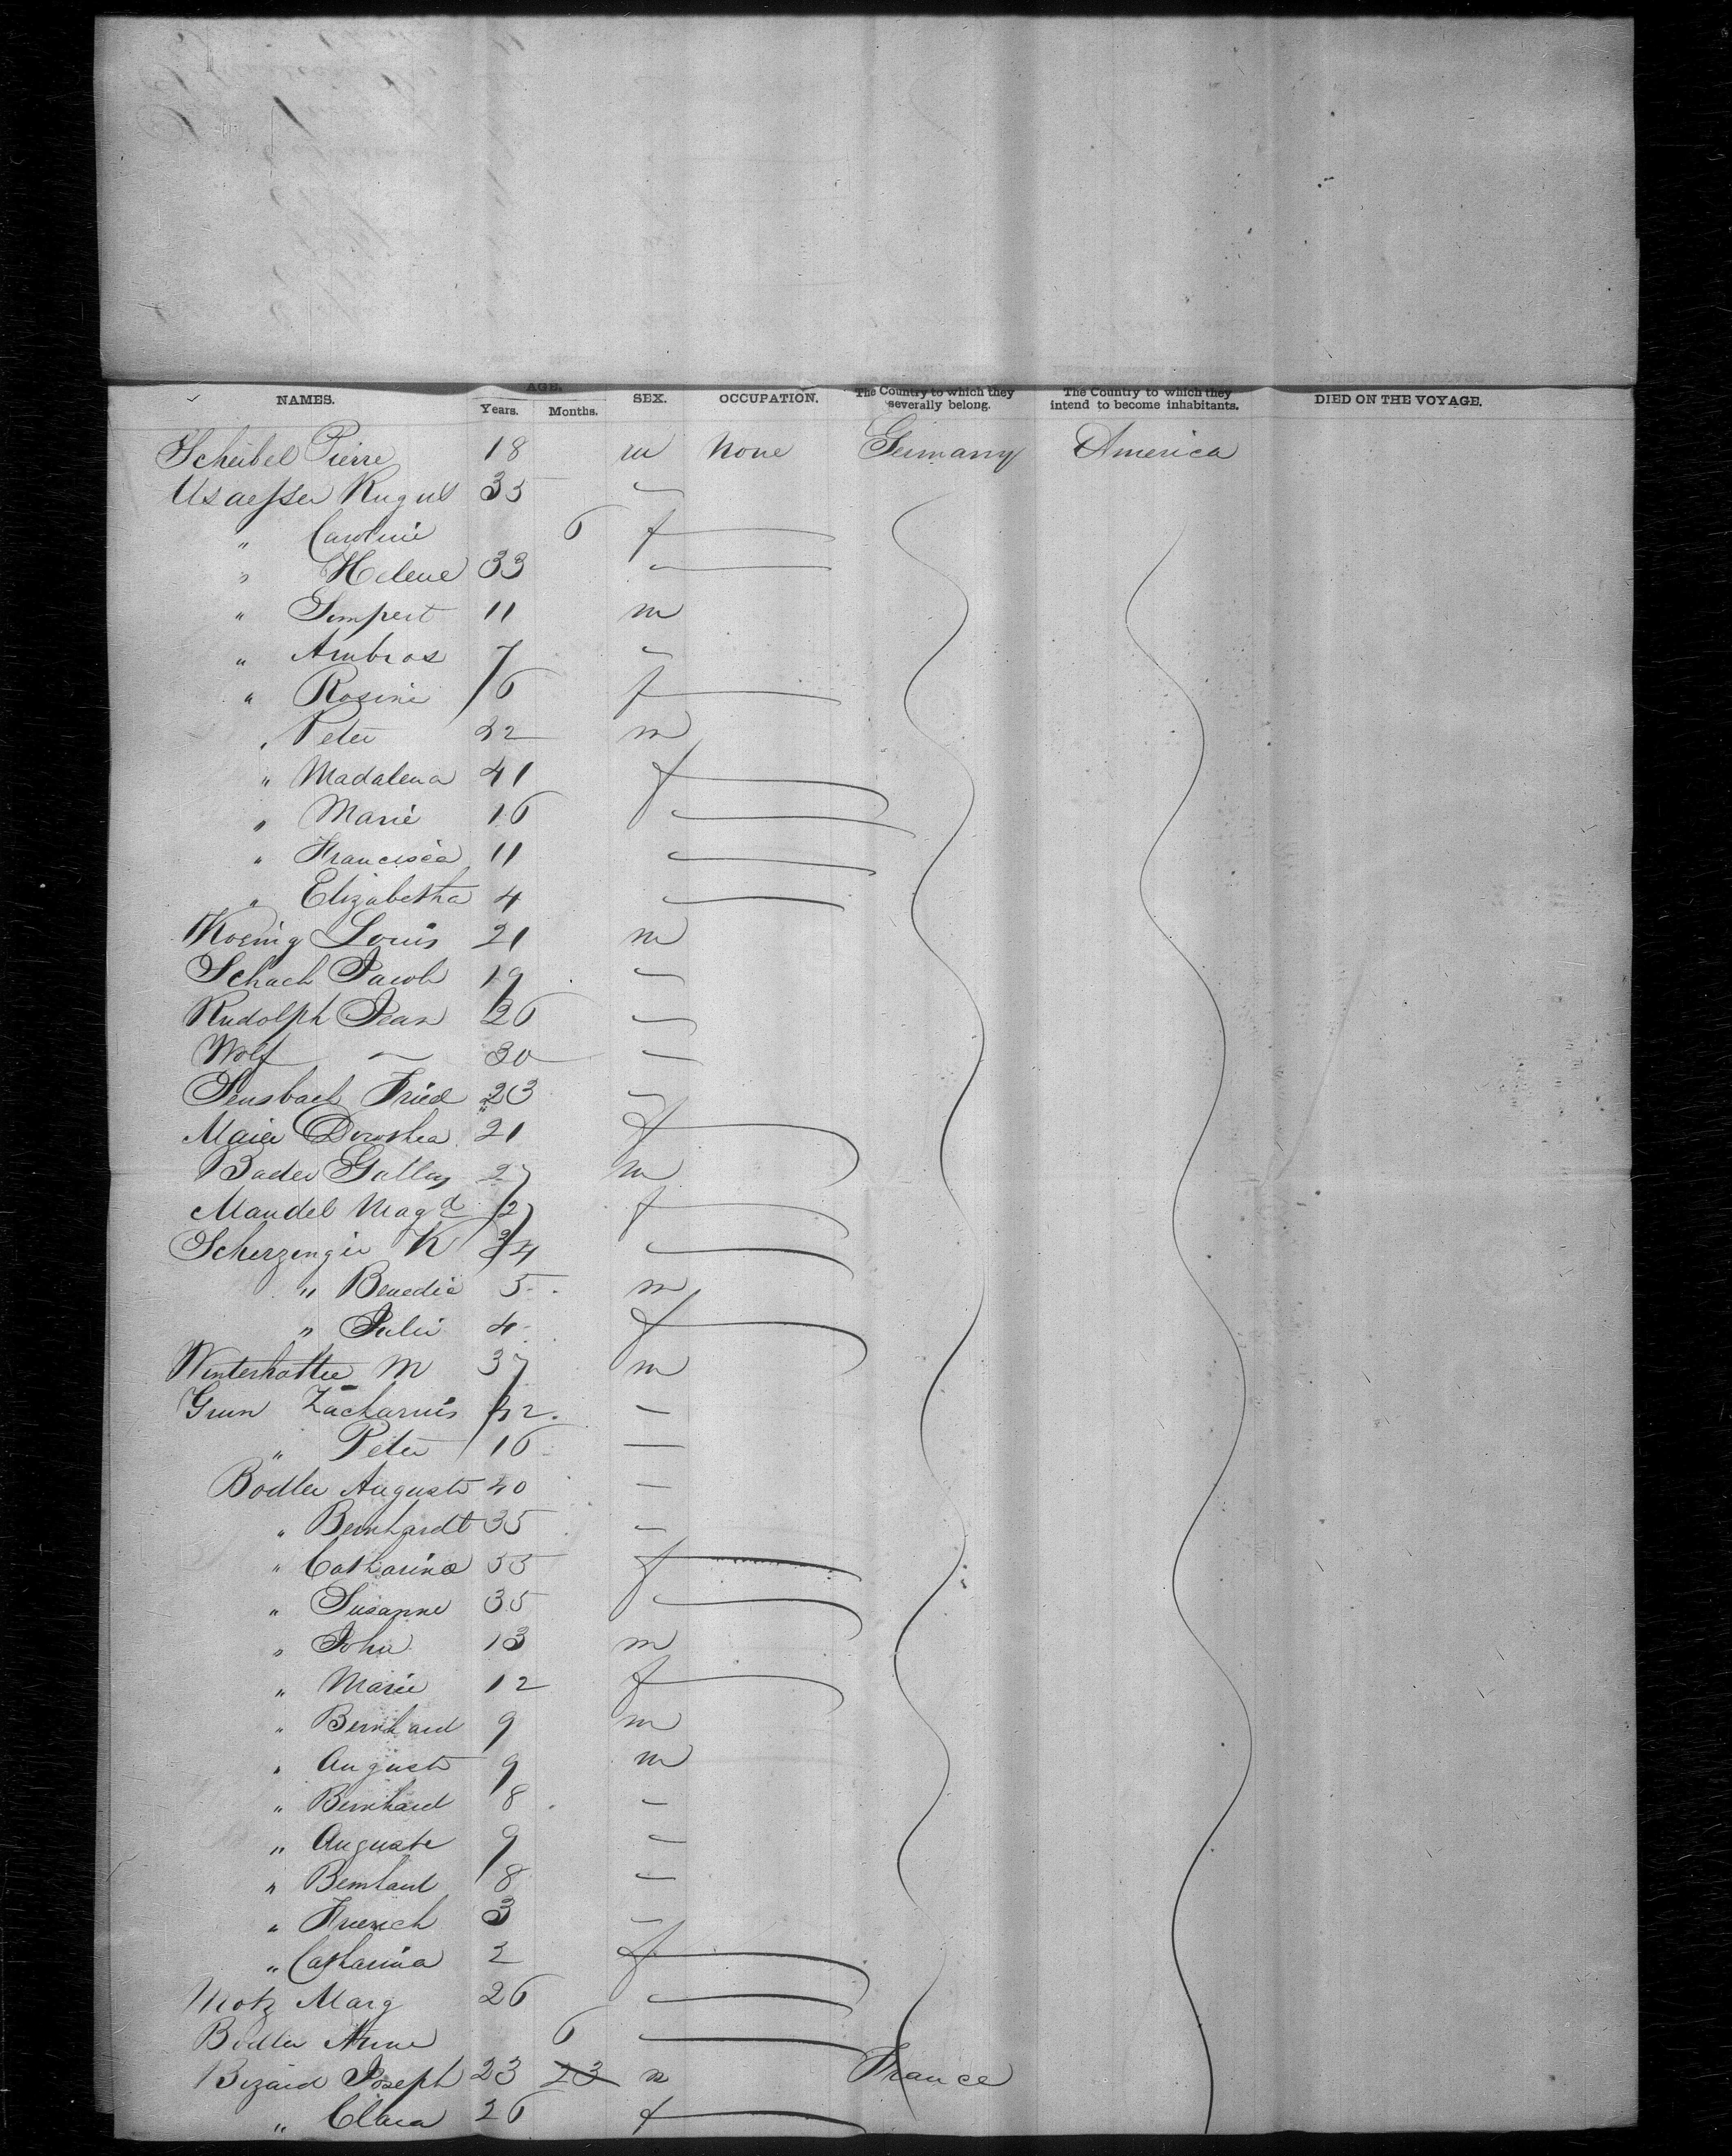 NAMES. AGE. Years. Months. SEX. OCCUPATION. The Country to which they severally belong. The Country to which they intend to become inhabitants. DIED ON THE VOYAGE.
Scheibel Pierre 18 m None Germany America
35
" Caroline 6 f
" Helene 33
" Simpert 11 m
" Ambros 7
" Rosine 6 f
" Peter m
" Madalena 41 f
" Marie 16
" Francisca 11
" Elizabetha 4
Koenig Louis 21 m
Schach Jacob 19
Rudolph Jean 26
Wolf — 30
Sensbach Fried 23
Maier Dorothea 21 f
Bader Gallus 27 m
Mandel Magd 27 f
Scherzenger K 34
" Benedic 5 m
" Julie 4 f
Winterhatter M 37 m
Grun Zacharius 42
" Peter 16
Bodler Auguste 40
" Bernhardt 35
" Catharina f
" Susanne 35
" John 13 m
" Marie 12 f
" Bernhard 9 m
" Auguste 9 m
" Bernhard 8
" Auguste 9
" Bernhard 8
" 3
" Catharina 2 f
Motz Marg 26
Bodler Anne 6
Bizard Joseph 23 23 m France
" Clara 26 f